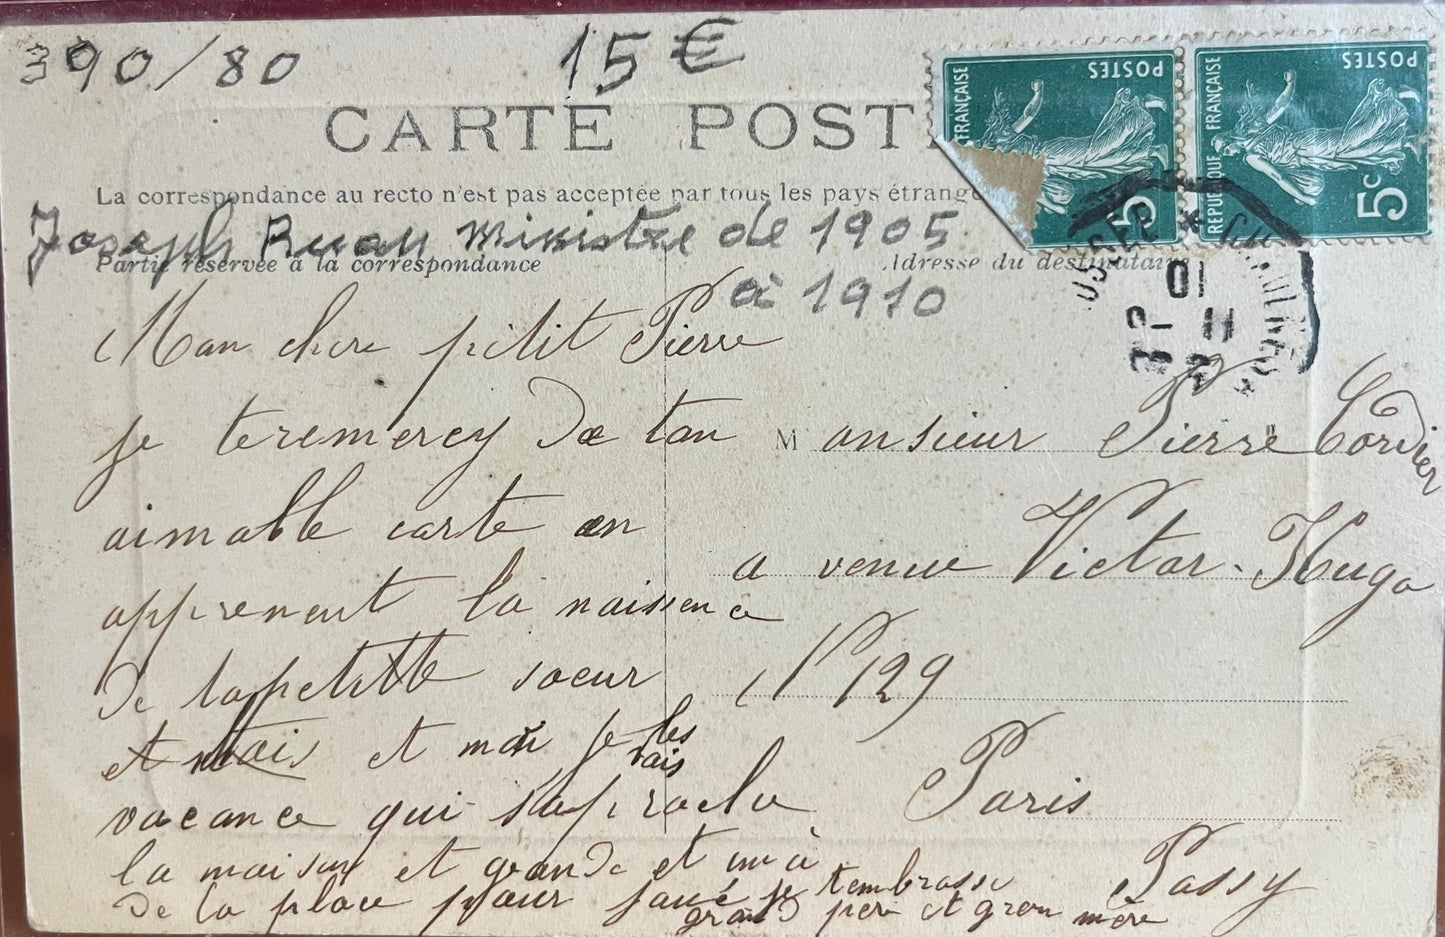 390/80
15 €
CARTE POST
La correspondance au recto n'est pas acceptée par tous les pays étrange
Joseph Ruau Ministre de 1905
à 1910
Partie réservée à la correspondance
Adresse du destinataire
POSTES
FRANÇAISE
5
POSTES
REPUBLIQUE FRANÇAISE
5c
Mon chere pitit Pierre
je teremercy De ton
aimable carte en
apprenent la naissence
De lapetitte soeur
et mais et moi je vais les
vacance qui s'aproche
la maison et grande et un a
De la place pour je tembrasse
grand pere et gran mère
Monsieur Pierre Cordier
avenue Victor-Hugo
N 129
Paris
Passy